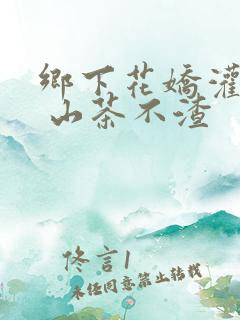 鄉下花嬌灌
山茶不渣
佟言1
未经同意禁止转载